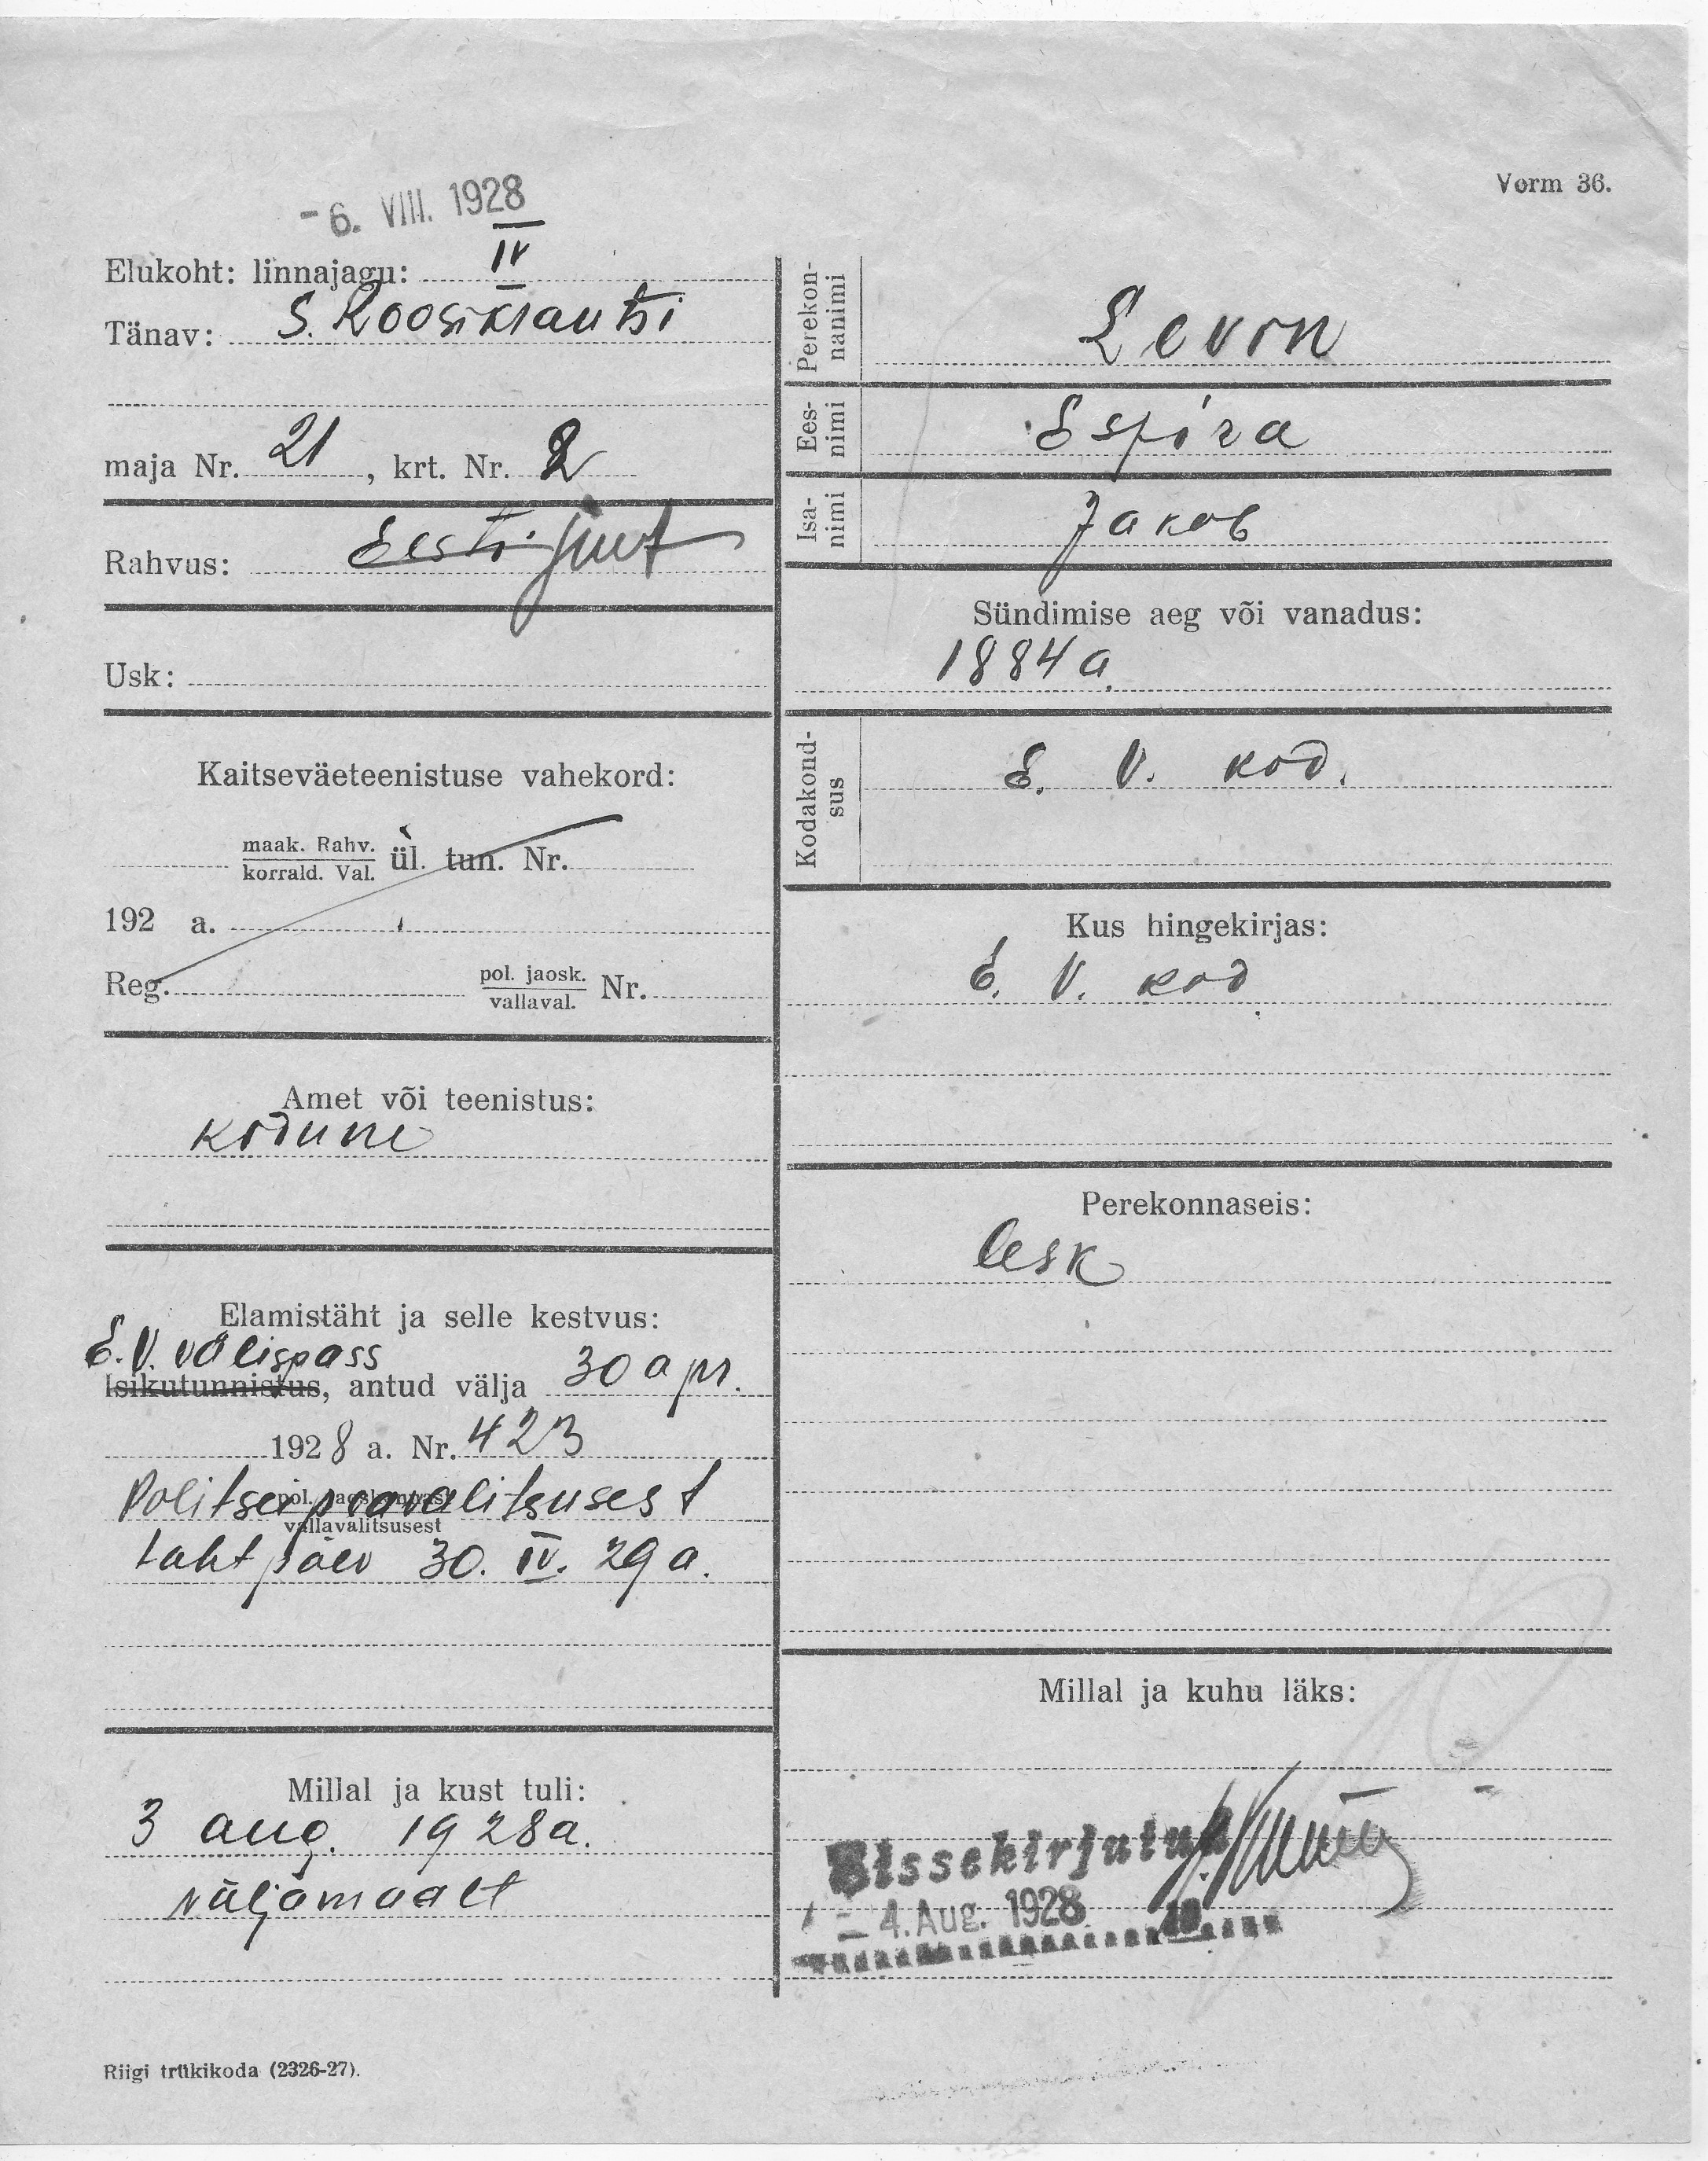 - 6. VIII. 1928
Vorm 36.
Elukoht: linnajagu: IV
Tänav: S. Roosikrantsi
maja Nr. 21, krt. Nr. 2
Rahvus: Eesti juut
Usk:
Kaitseväeteenistuse vahekord:
maak. Rahv.
korrald. Val. ül. tun. Nr.
192 a.
Reg. pol. jaosk.
vallaval. Nr.
Amet või teenistus:
kodune
Elamistäht ja selle kestvus:
E. V. välispass
Isikutunnistus, antud välja 30 apr.
1928 a. Nr. 423
Politsei peavalitsusest
vallavalitsusest
tähtpäev 30. IV. 29 a.
Millal ja kust tuli:
3 aug. 1928 a.
väljamaalt
Riigi trükikoda (2326-27).
Perekon-
nanimi
Levin
Ees-
nimi
Espira
Isa-
nimi
Jakob
Sündimise aeg või vanadus:
1884 a.
Kodakond-
sus
E. V. kod.
Kus hingekirjas:
E. V. kod
Perekonnaseis:
lesk
Millal ja kuhu läks:
Sissekirjutud
- 4. Aug. 1928